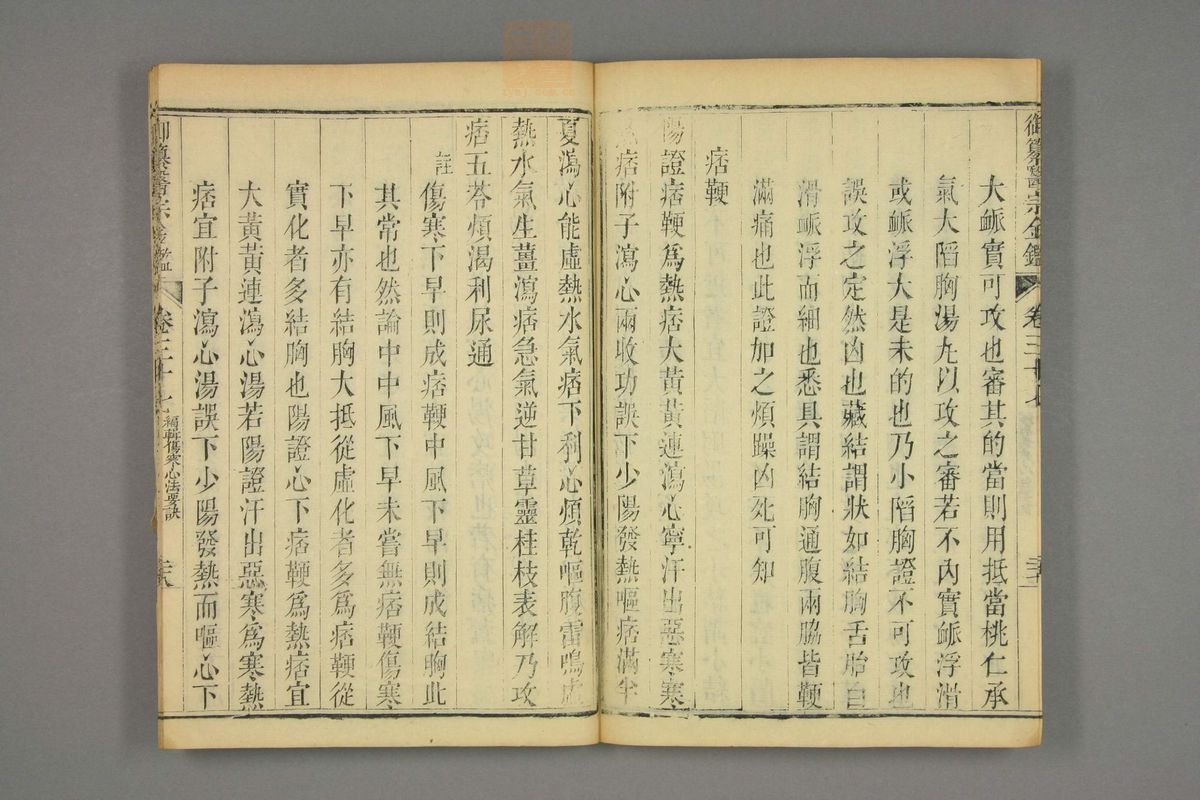 御纂醫宗金鑑 卷三十七
大䘑實可攻也審其的當則用抵當桃仁承
氣大陷胸湯丸以攻之審若不內實䘑浮滑
或䘑浮大是未的也乃小陷胸證不可攻也
誤攻之定然凶也藏結謂狀如結胸舌胎白
滑䘑浮而細也悉具謂結胸通腹兩脇皆鞕
滿痛也此證加之煩躁凶死可知
痞鞕
陽證痞鞕爲熱痞大黃黃連瀉心寧汗出惡寒寒
熱痞附子瀉心兩收功誤下少陽發熱嘔痞滿半
夏瀉心能虛熱水氣痞下利心煩乾嘔腹雷鳴虛
熱水氣生薑瀉痞急氣逆甘草靈桂枝表解乃攻
痞五苓煩渴利尿通
註
傷寒下早則成痞鞕中風下早則成結胸此
其常也然論中中風下早未嘗無痞鞕傷寒
下早亦有結胸大抵從虛化者多爲痞鞕從
實化者多結胸也陽證心下痞鞕爲熱痞宜
大黃黃連瀉心湯若陽證汗出惡寒爲寒熱
痞宜附子瀉心湯誤下少陽發熱而嘔心下
御纂醫宗金鑑 卷三十七 編輯傷寒心法要訣